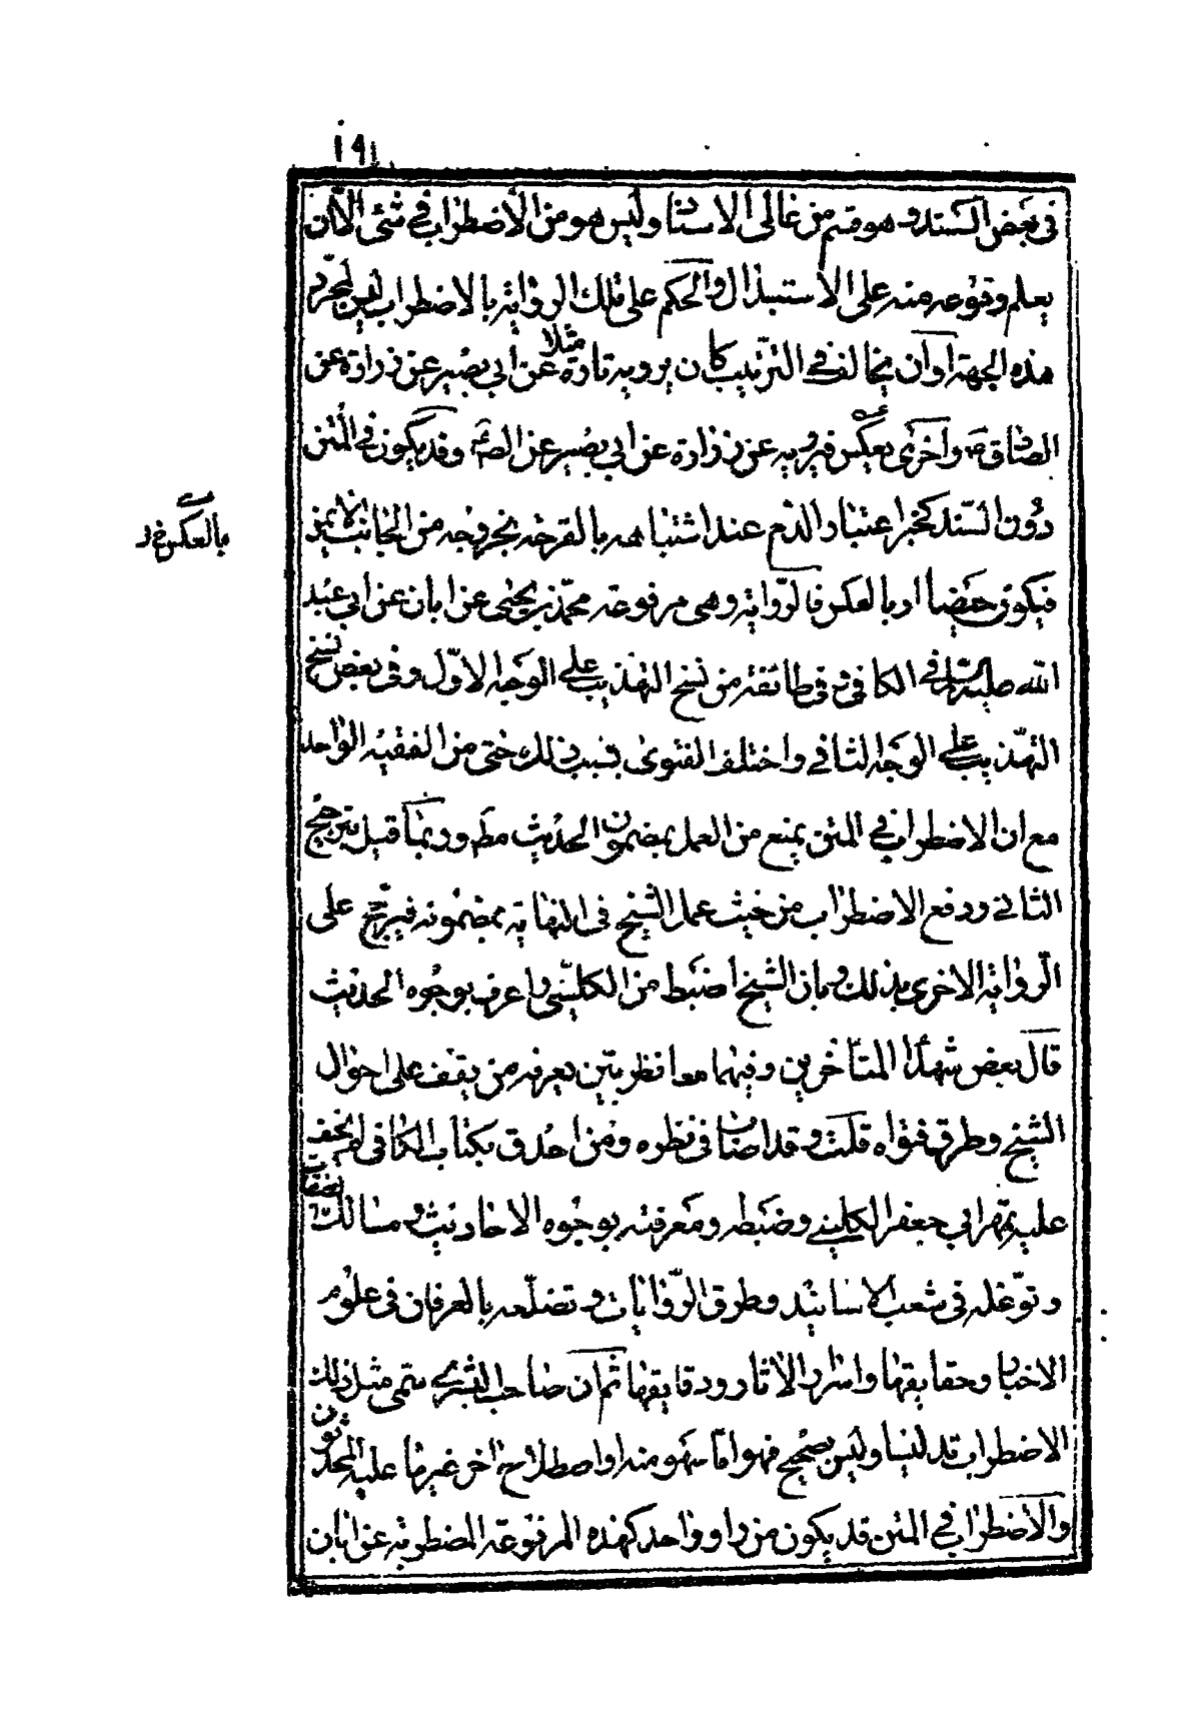 ١٩١
في بعض السند وهو قسم من عالى الاسناد وليس هو من الاضطراب في شئ الا ان
يعلم وقوعه منه على الاستبدال والحكم على تلك الرواية بالاضطراب ليس لمجرد
هذه الجهة او ان يخالف في الترتيب كان يرويه تارة مثلا عن أبي بصير عن زرارة عن
الصادق ع واخرى بعكس فيرويه عن زرارة عن ابي بصير عن الصّ ع وقد يكون في المتن
دون السند كخبر اعتبار الدم عند اشتباهه بالقرحة بخروجه من الجانب الايمن
فيكون حيضا او بالعكس فالرواية وهى مرفوعة محمد بن يحيى عن ابان عن ابي عبد
الله عليه السلم في الكافي وفي طائفة من نسخ التهذيب على الوجه الاول وفي بعض نسخ
التهذيب على الوجه الثاني واختلف الفتوى بسبب ذلك حتى من الفقيه الواحد
مع ان الاضطراب في المتن يمنع من العمل بمضمون الحديث مطم وربما قيل بترجيح
الثاني ودفع الاضطراب من حيث عمل الشيخ في النهاية بمضمونه فيرجح على
الرواية الاخرى بذلك وبان الشيخ اضبط من الكليني واعرف بوجوه الحديث
قال بعض شهداء المتأخرين وفيهما معا نظر بيّن يعرفه من يقف على احوال
الشيخ وطرق فتواه قلت وقد اصاب في نظره ومن احدق بكتاب الكافي لم يخف
عليه تمهر ابي جعفر الكليني وضبطه ومعرفته بوجوه الاحاديث ومسالك
وتوغله في شعب الاسانيد وطرق الروايات وتضلعه بالعرفان في علوم
الاخبار وحقايقها واسرار الاثار ودقايقها ثم ان صاحب البشرى سمى مثل ذلك
الاضطراب تدليسا وليس بصحيح فهو اما سهو منه او اصطلاح اخر غير ما عليه المحدثون
والاضطراب في المتن قد يكون من راو واحد كهذه المرفوعة المضطربة عن ابان
بالعكس